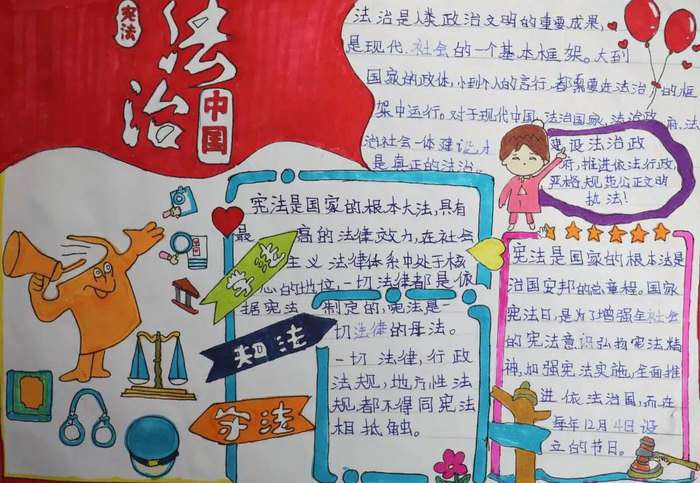 宪法
法治
中国
法治是人类政治文明的重要成果,
是现代社会的一个基本框架。大到
国家的政体,小到个人的言行,都需要在法治的框
架中运行。对于现代中国,法治国家、法治政府、法
治社会一体建设,才
是真正的法治。
建设法治政
府,推进依法行政,
严格规范公正文明
执法!
宪法是国家的根本大法,具有
最高的法律效力,在社会
主义法律体系中处于核
心的地位,一切法律都是依
据宪法制定的,宪法是一
切法律的母法。
一切法律,行政
法规,地方性法
规都不得同宪法
相抵触。
学法
知法
守法
宪法是国家的根本法是
治国安邦的总章程。国家
宪法日,是为了增强全社会
的宪法意识弘扬宪法精
神,加强宪法实施,全面推
进依法治国,而在
每年12月4日设
立的节日。